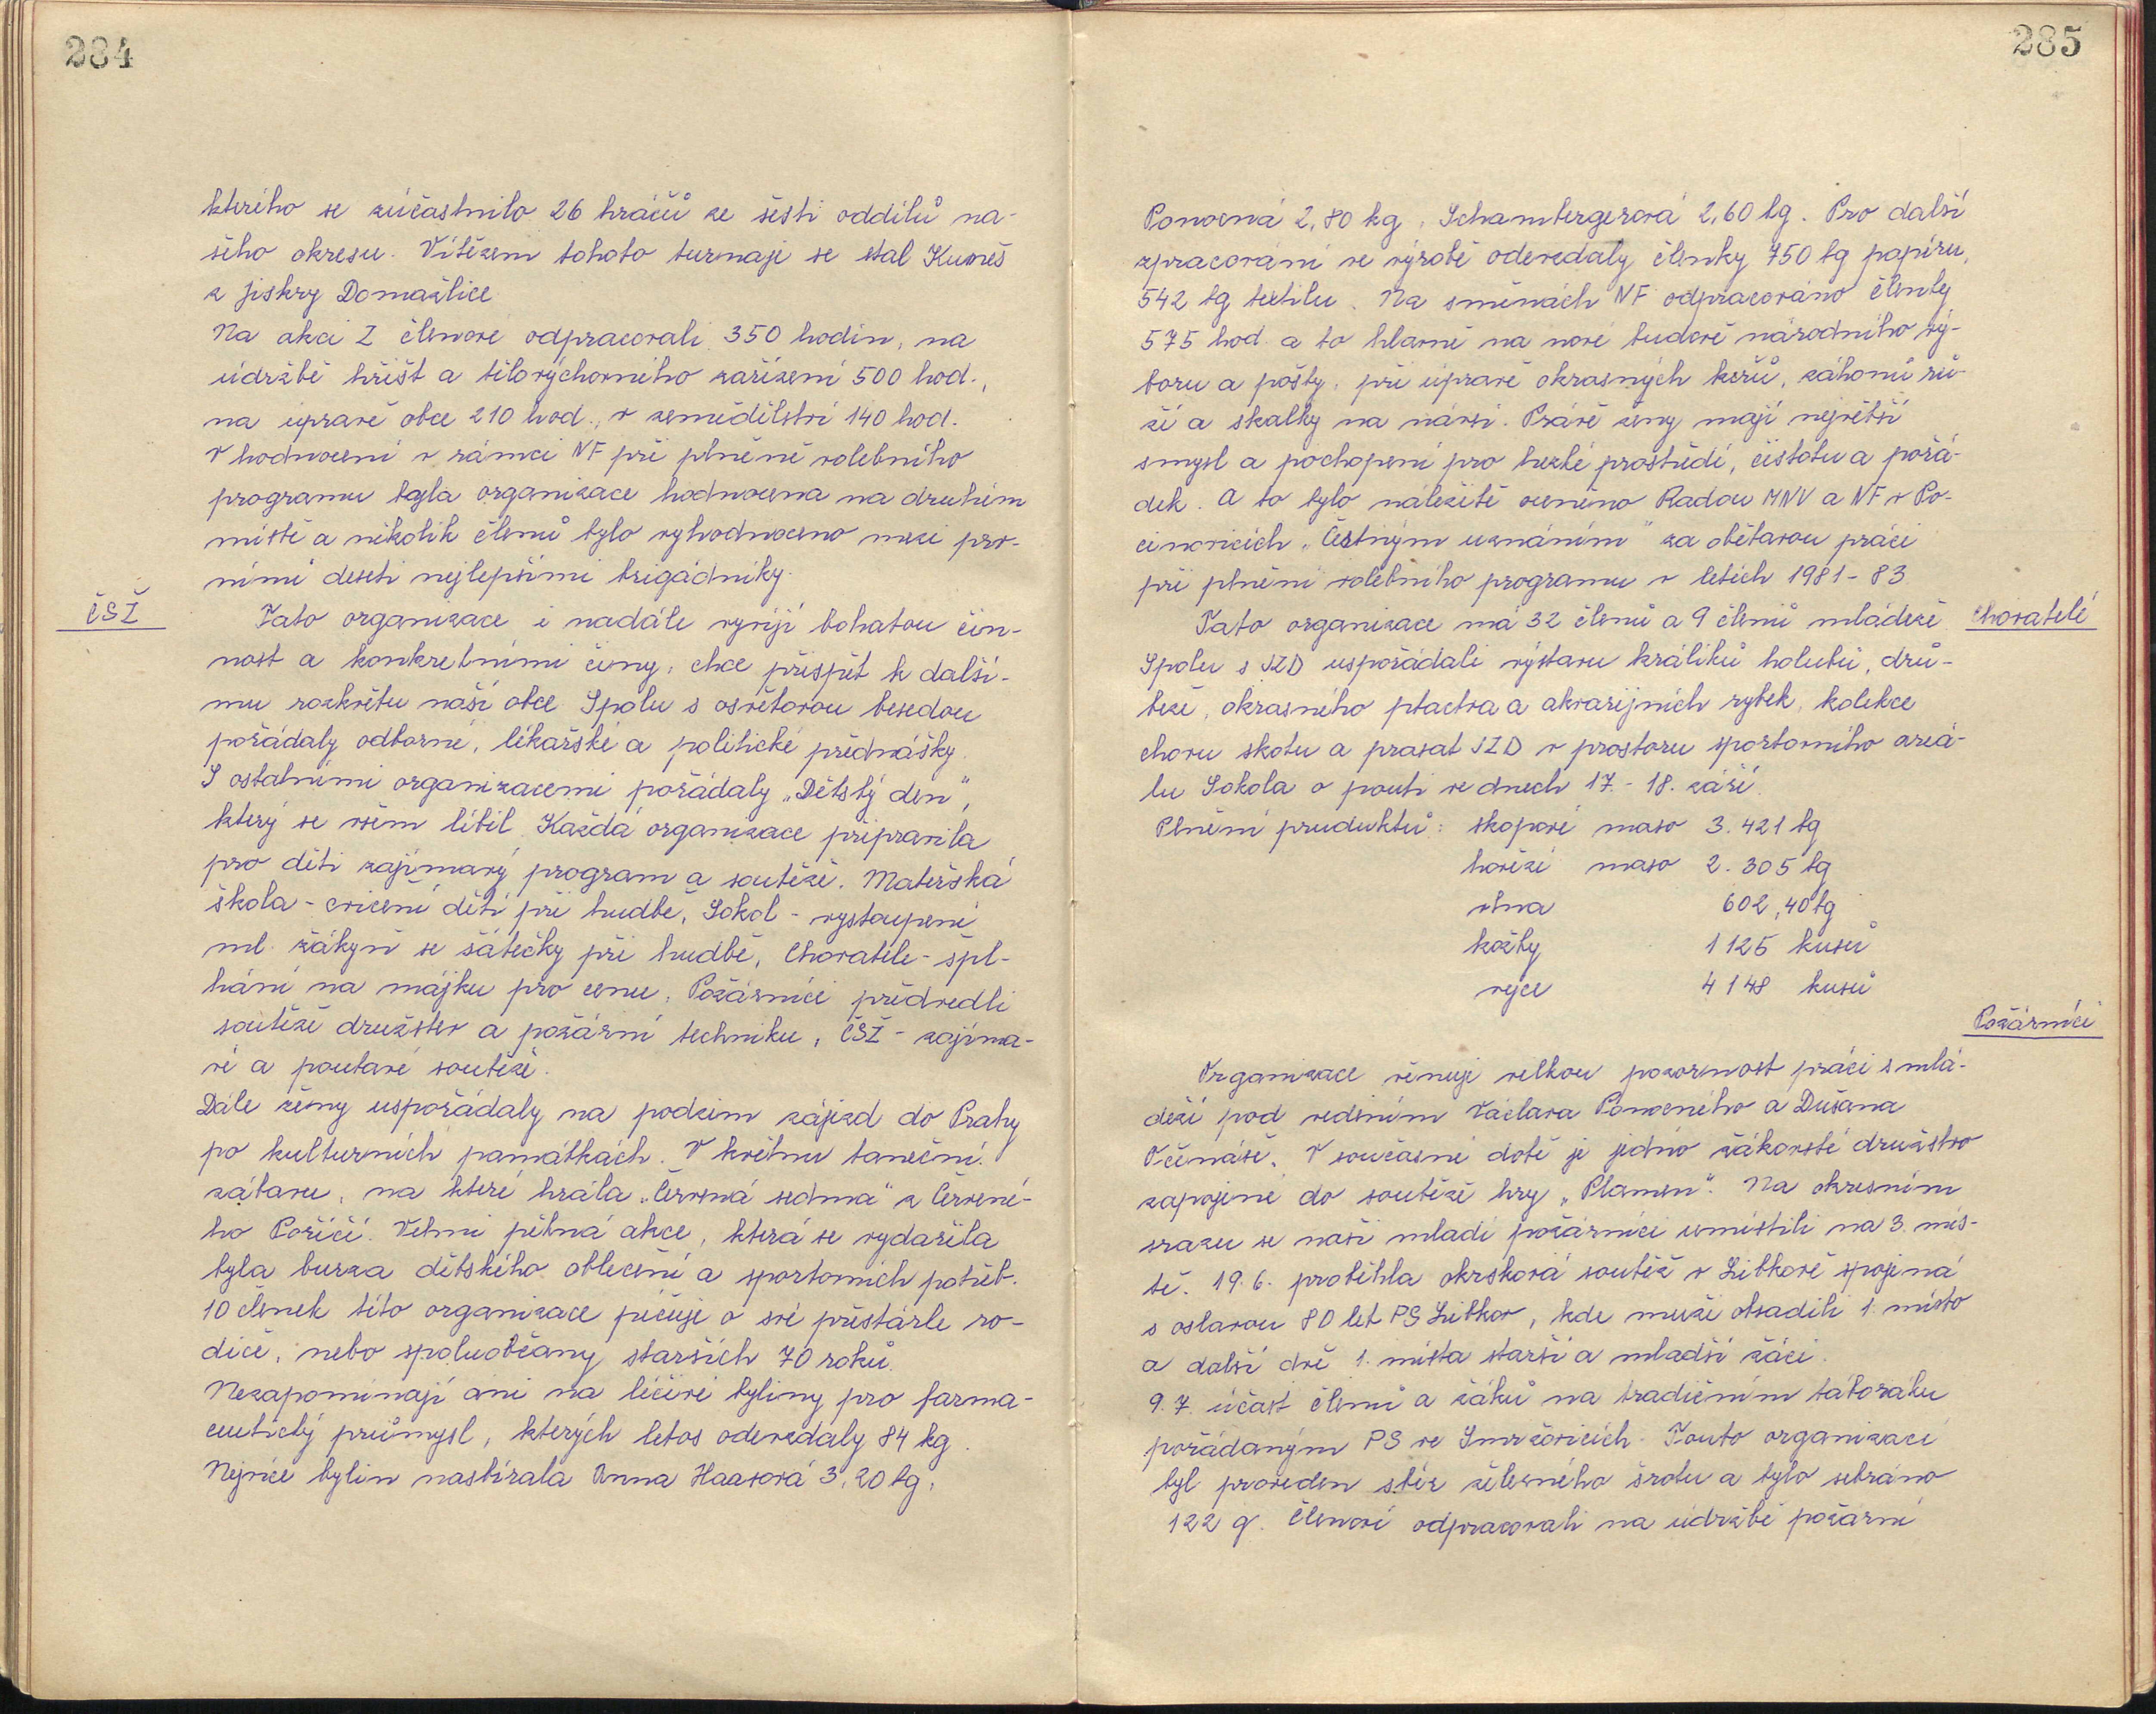 284
kterého se zúčastnilo 26 hráčů ze šesti oddílů na-
šeho okresu. Vítězem tohoto turnaje se stal Kuneš
z Jiskry Domažlice
Na akci Z členové odpracovali 350 hodin, na
údržbě hřišť a tělovýchovného zařízení 500 hod.,
na úpravě obce 210 hod., v zemědělství 140 hod.
V hodnocení v rámci NF při plnění volebního
programu byla organizace hodnocena na druhém
místě a několik členů bylo vyhodnoceno mezi prv-
ními deseti nejlepšími brigádníky.
ČSŽ
Tato organizace i nadále vyvíjí bohatou čin-
nost a konkretními činy, chce přispět k další-
mu rozkvětu naší obce Spolu s osvětovou besedou
pořádaly odborné, lékařské a politické přednášky.
S ostatními organizacemi pořádaly „Dětský den",
který se všem líbil. Každá organizace připravila
pro děti zajímavý program a soutěže. Mateřská
škola - cvičení dětí při hudbě, Sokol - vystoupení
ml. žákyň se šátečky při hudbě, Chovatele - špl-
hání na májku pro cenu, Požárníci předvedli
soutěže družstev a požární techniku, ČSŽ - zajíma-
vé a poutavé soutěže.
Dále ženy uspořádaly na podzim zájezd do Prahy
po kulturních památkách. V květnu taneční
zábavu, na které hrála „Červená sedma" z Červené-
ho Poříčí. Velmi pěkná akce, která se vydařila
byla burza dětského oblečení a sportovních potřeb.
10 členek této organizace pečuje o své přestárlé ro-
diče, nebo spoluobčany starších 70 roků.
Nezapomínají ani na léčivé byliny pro farma-
ceutický průmysl, kterých letos odevzdaly 84 kg.
Nejvíce bylin nasbírala Anna Haasová 3,20 kg,
285
Ponocná 2,80 kg, Schambergerová 2,60 kg. Pro další
zpracování ve výrobě odevzdaly členky 750 kg papíru,
542 kg textilu. Na směnách NF odpracováno členky
575 hod. a to hlavně na nové budově národního vý-
boru a pošty, při úpravě okrasných keřů, záhonů rů-
ží a skalky na návsi. Právě ženy mají největší
smysl a pochopení pro hezké prostředí, čistotu a pořá-
dek. A to bylo náležitě oceněno Radou MNV a NF v Po-
cinovicích „Čestným uznáním" za obětavou práci
při plnění volebního programu v letech 1981 - 83
Chovatelé
Tato organizace má 32 členů a 9 členů mládeže
Spolu s JZD uspořádali výstavu králíků holubů, drů-
beže, okrasného ptactva a akvarijních rybek, kolekce
chovu skotu a prasat JZD v prostoru sportovního areá-
lu Sokola o pouti ve dnech 17. - 18. září.
Plnění pruduktů: skopové maso 3.421 kg
hovězí maso 2.305 kg
vlna 602,40 kg
kožky 1125 kusů
vejce 4148 kusů
Požárníci
Organizace věnuje velkou pozornost práci s mlá-
deží pod vedením Václava Ponocného a Dušana
Očenáše. V současné době je jedno žákovské družstvo
zapojené do soutěže hry „Plamen". Na okresním
srazu se naši mladí požárníci umístili na 3. mís-
tě. 19.6. proběhla okrsková soutěž v Libkově spojená
s oslavou 80 let PS Libkov, kde muži obsadili 1. místo
a další dvě 1. místa starší a mladší žáci.
9.7. účast členů a žáků na tradičním táboráku
pořádaným PS ve Smržovicích. Touto organizací
byl proveden sběr železného šrotu a bylo sebráno
122 q. Členové odpracovali na údržbě požární